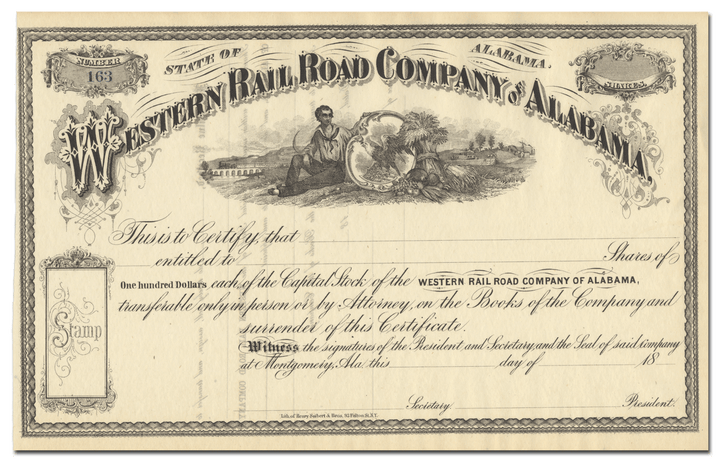 NUMBER
163
STATE OF ALABAMA.
SHARES.
WESTERN RAIL ROAD COMPANY OF ALABAMA.
This is to Certify, that
entitled to Shares of
One hundred Dollars each of the Capital Stock of the WESTERN RAIL ROAD COMPANY OF ALABAMA,
transferable only in person or by Attorney, on the Books of the Company and
surrender of this Certificate.
Stamp
Witness the signatures of the President and Secretary, and the Seal of said Company
at Montgomery, Ala. this day of 18
Secretary. President.
Lith. of Henry Seibert & Bros.